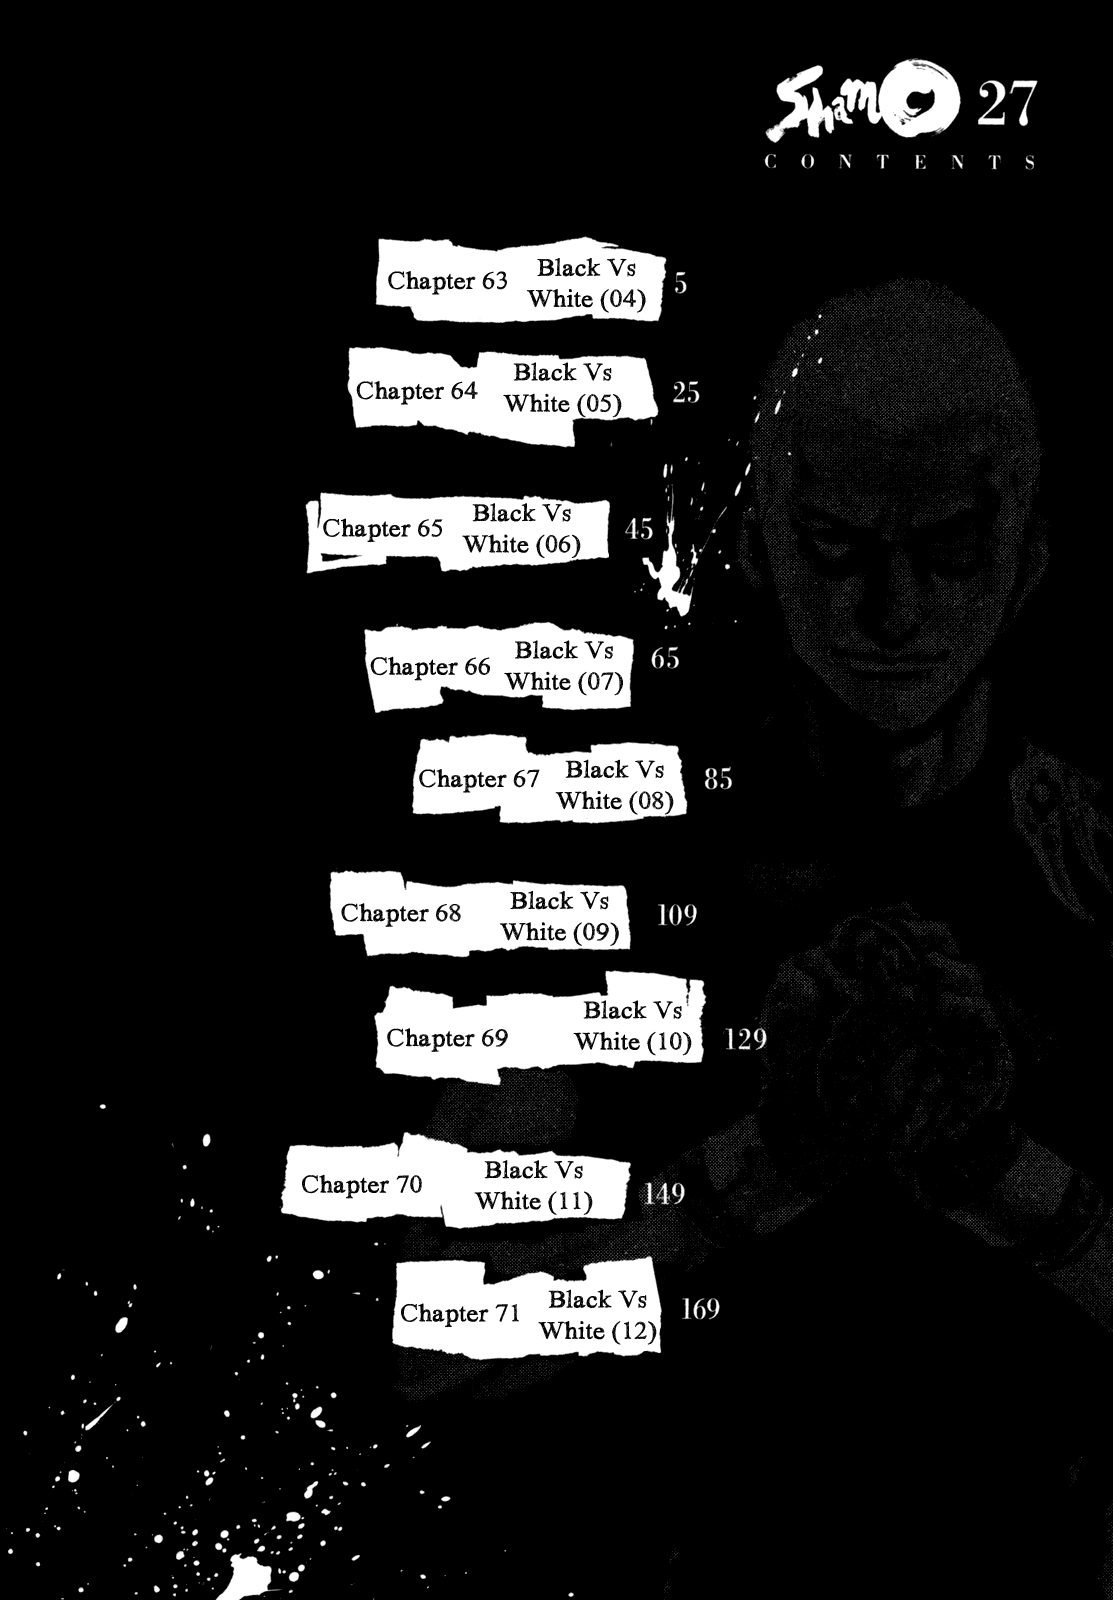 Shamo 27
CONTENTS
Chapter 63 Black Vs
White (04) 5
Chapter 64 Black Vs
White (05) 25
Chapter 65 Black Vs
White (06) 45
Chapter 66 Black Vs
White (07) 65
Chapter 67 Black Vs
White (08) 85
Chapter 68 Black Vs
White (09) 109
Chapter 69 Black Vs
White (10) 129
Chapter 70 Black Vs
White (11) 149
Chapter 71 Black Vs
White (12) 169